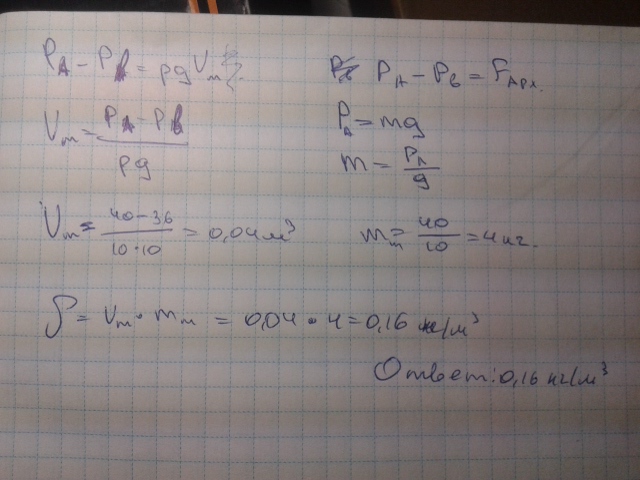 P_A - P_B = ρgV_т
V_т = (P_A - P_B) / ρg
V_т = (40-36) / (10·10) = 0,04 м³
P_A - P_B = F_Арх.
P_A = mg
m = P_A / g
m_т = 40 / 10 = 4 кг.
ρ = V_т · m_т = 0,04 · 4 = 0,16 кг/м³
Ответ: 0,16 кг/м³